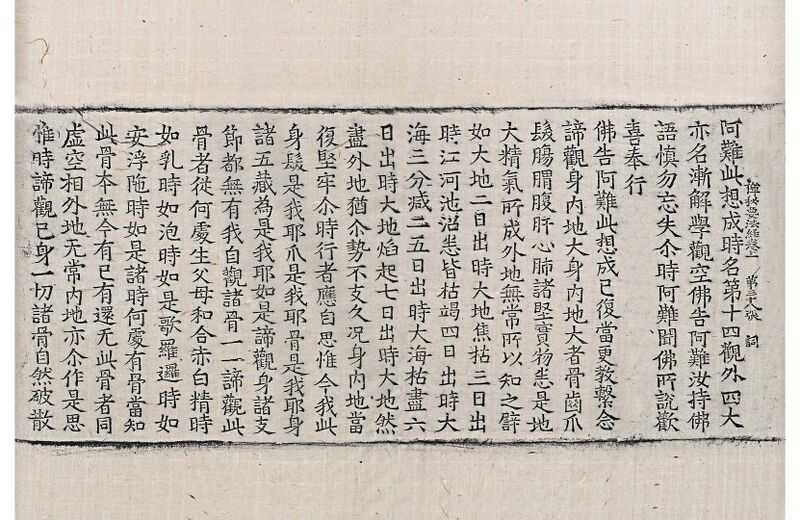 禪秘要法經卷 第 張 詞
阿難此想成時名第十四觀外四大
亦名漸解學觀空佛告阿難汝持佛
語慎勿忘失尒時阿難聞佛所說歡
喜奉行
佛告阿難此想成已復當更教繫念
諦觀身內地大身內地大者骨齒爪
髮腸胃腹肝心肺諸堅實物悉是地
大精氣所成外地無常所以知之譬
如大地二日出時大地焦枯三日出
時江河池沼悉皆枯竭四日出時大
海三分減二五日出時大海枯盡六
日出時大地焰起七日出時大地然
盡外地猶尒勢不支久況身內地當
復堅牢尒時行者應自思惟今我此
身髮是我耶爪是我耶骨是我耶身
諸五藏為是我耶如是諦觀身諸支
節都無有我自觀諸骨一一諦觀此
骨者從何處生父母和合赤白精時
如乳時如泡時如是歌羅邏時如
安浮陁時如是諸時何處有骨當知
此骨本無今有已有還无此骨者同
虛空相外地无常內地亦尒作是思
惟時諦觀己身一切諸骨自然破散